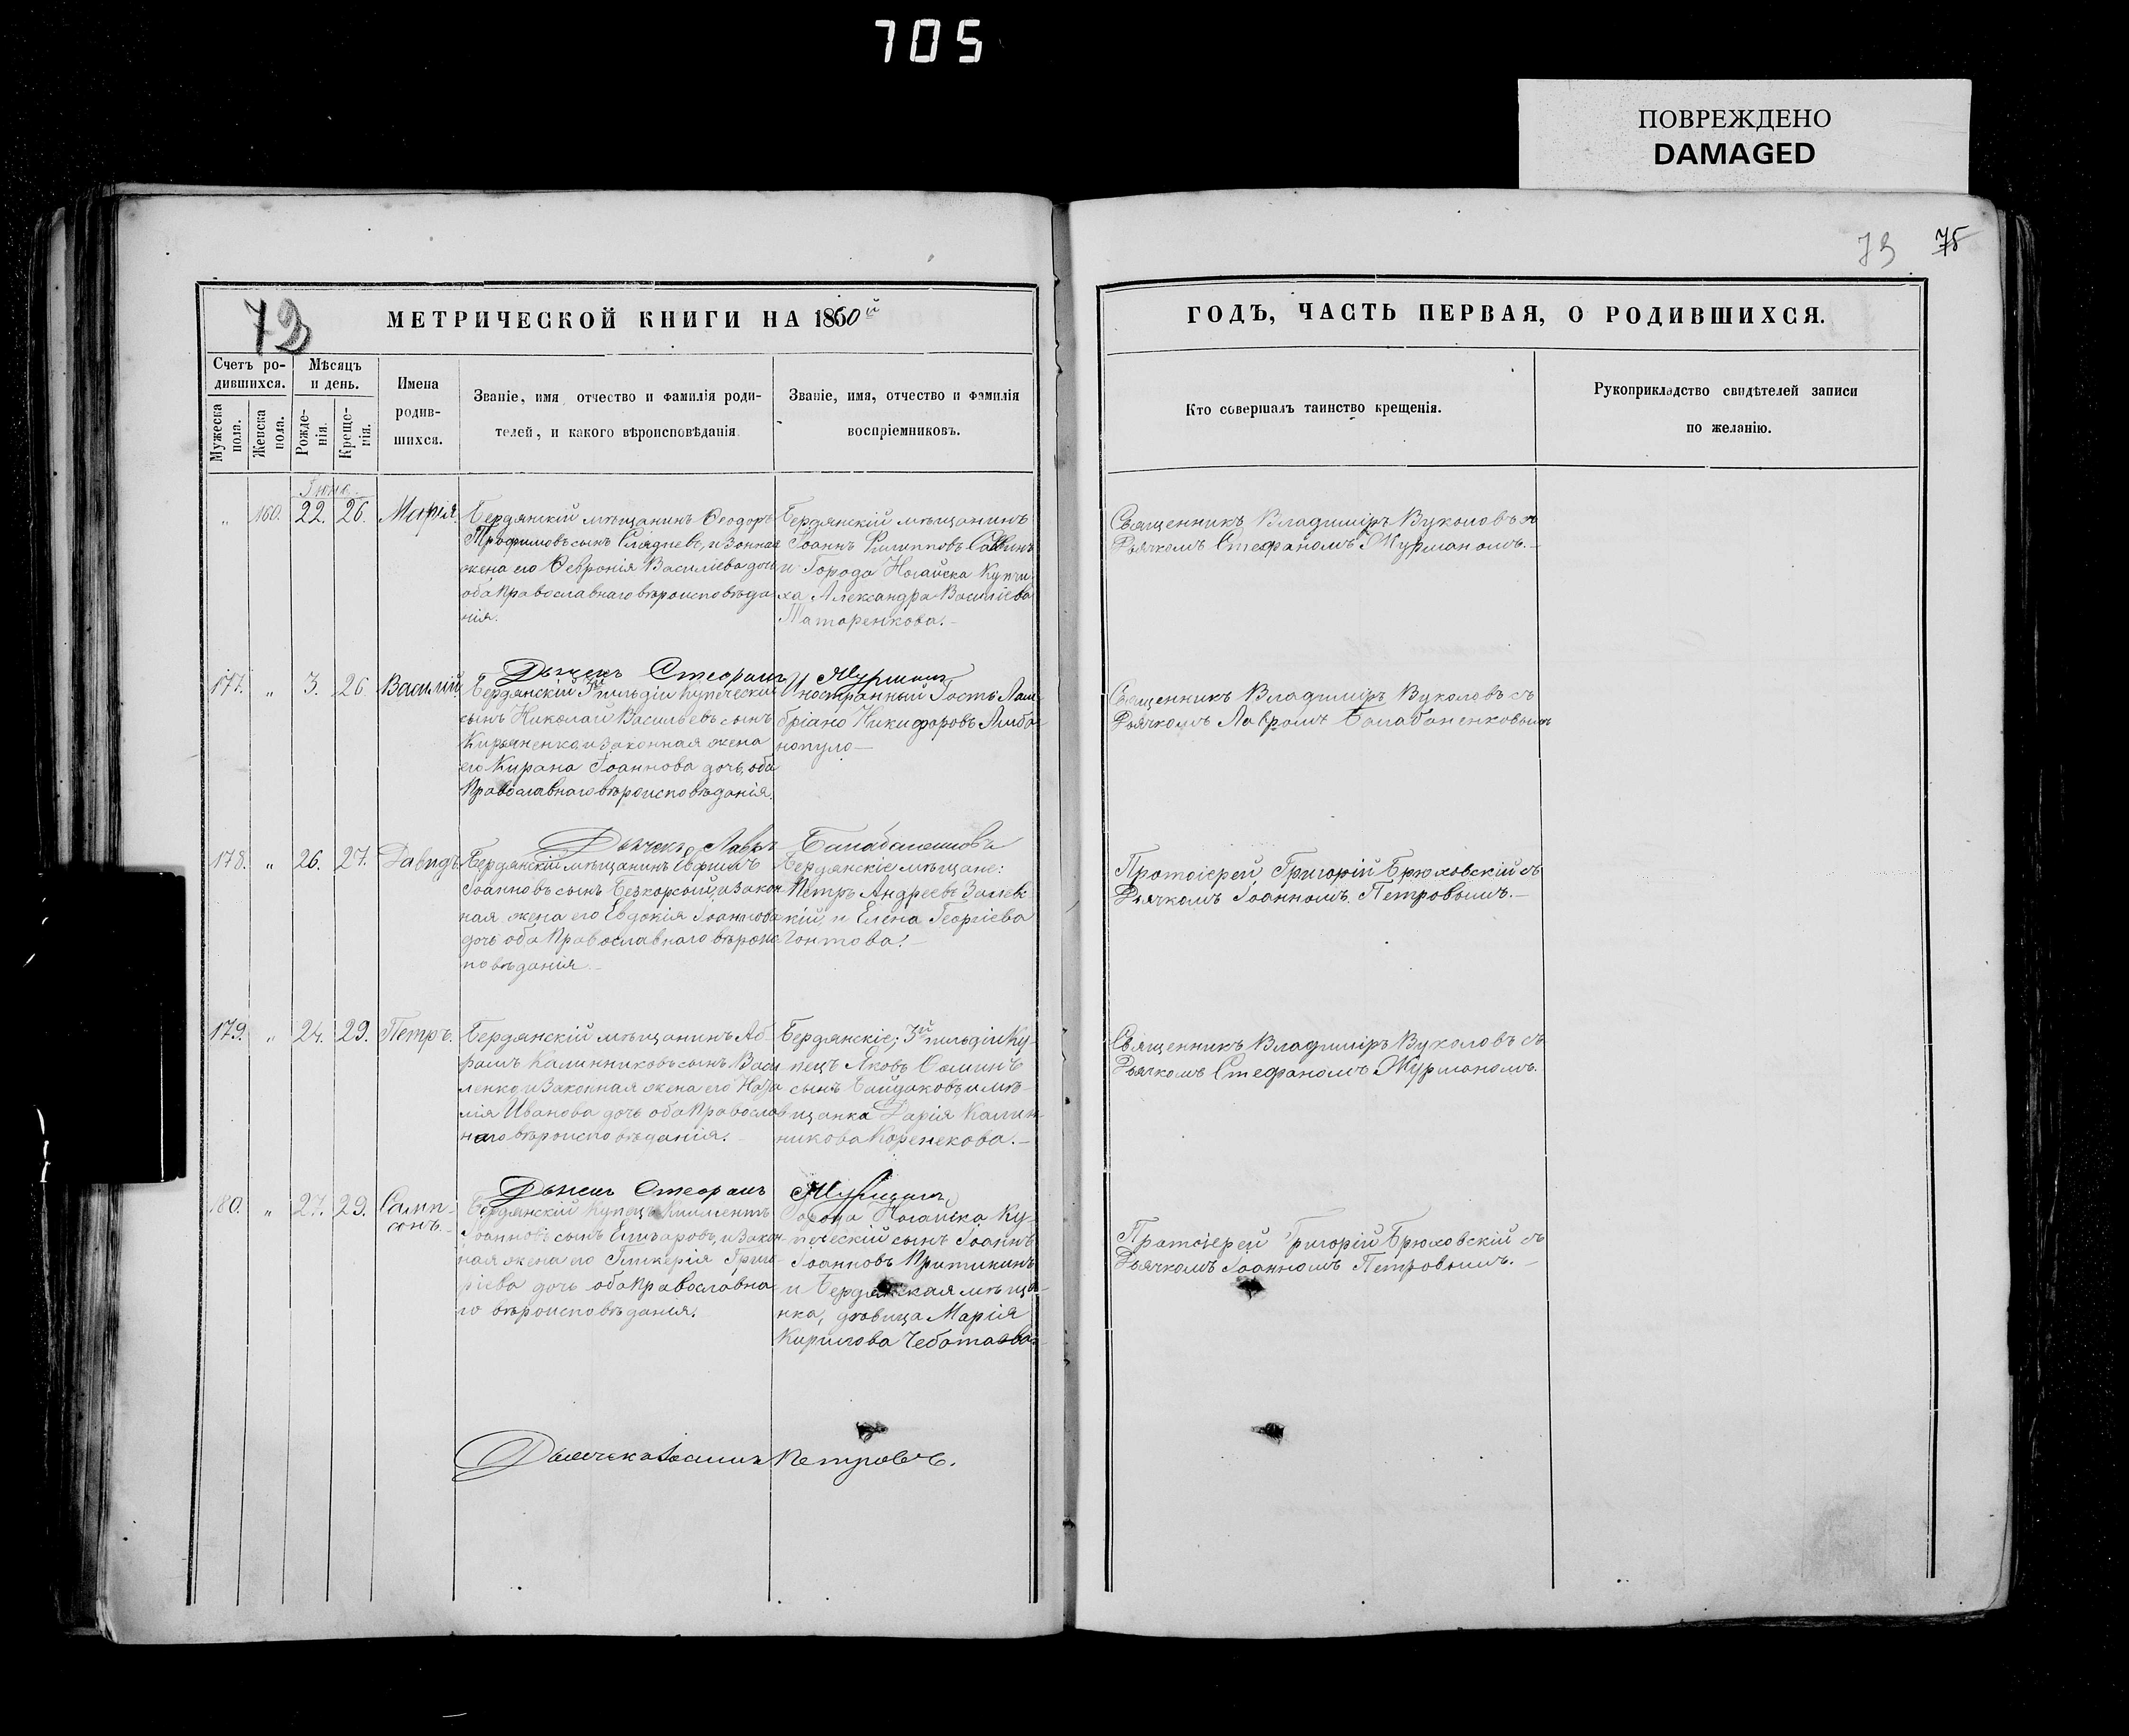 705
ПОВРЕЖДЕНО
DAMAGED
73 75
73
МЕТРИЧЕСКОЙ КНИГИ НА 1860й
ГОДЪ, ЧАСТЬ ПЕРВАЯ, О РОДИВШИХСЯ.
Счетъ ро-
дившихся.
Мужеска
пола.
Женска
пола.
Мѣсяцъ
и день.
Рожде-
нія.
Креще-
нія.
Имена
родив-
шихся.
Званіе, имя отчество и фамилія роди-
телей, и какого вѣроисповѣданія
Званіе, имя, отчество и фамилія
воспріемниковъ.
Кто совершалъ таинство крещенія.
Рукоприкладство свидѣтелей записи
по желанію.
„ 160. 22. 26. Марія.
Бердянскій мѣщанинъ Ѳеодоръ
Трофимовъ сынъ и Зонная
жена его Ѳевронія Василіева дочь
оба Православнаго вѣроисповѣда
нія.
Бердянскій мѣщанинъ
Іоаннъ Филипповъ Саввинъ
и Города Ногайска Купчи
ха Александра Василіева
Татаренкова.
Священникъ Владиміръ Вуколовъ съ
Дьячкомъ Стефаномъ Журманомъ.
Дьячекъ Стефанъ Журманъ
177. „ 3. 26. Василій
Бердянскій 3й гильдіи купеческій
сынъ Николай Васильевъ сынъ
Кирьяненко, и Законная жена
его Кирана Іоаннова дочь, оба
Православнаго вѣроисповѣданія.
Иностранный Гость Лам
бріано Никифоровъ Лимбо
нопуло
Священникъ Владиміръ Вуколовъ съ
Дьячкомъ Лавромъ Балабаненковымъ
Дьячекъ Лавръ Балабаненковъ
178. „ 26. 27. Давидъ.
Бердянскій мѣщанинъ Евфимъ
Іоанновъ сынъ Безкорсый, и закон
ная жена его Евдокія Іоаннова
дочь оба Православнаго вѣроис
повѣданія
Бердянскіе мѣщане:
Петръ Андреевъ Залев
кій, и Елена Георгіева
Гонтова.
Протоіерей Григорій Брюховскій съ
Дьячкомъ Іоанномъ Петровымъ.
179. „ 24. 29. Петръ.
Бердянскій мѣщанинъ Аб
рамъ Калинниковъ сынъ Васи
ленко, и Законная жена его Ната
лія Иванова дочь оба Православ
наго вѣроисповѣданія.
Бердянскіе; 3й гильдіи Ку
пецъ Яковъ Саминъ
сынъ Байдаковъ и мѣ-
щанка Дарія Калин
никова Коренекова.
Священникъ Владиміръ Вуколовъ съ
Дьячкомъ Стефаномъ Журманомъ.
Дьячекъ Стефанъ Журманъ
180. „ 27. 29. Самп-
сонъ.
Бердянскій Купецъ Климентъ
Іоанновъ сынъ Елизаровъ, и Закон
ная жена его Гликерія Григо
ріева дочь оба Православна
го вѣроисповѣданія.
Города Ногайска Ку-
печескій сынъ Іоаннъ
Іоанновъ Притикинъ
и Бердянская мѣща-
нка, дѣвица Марія
Кирилова
Протоіерей Григорій Брюховскій съ
Дьячкомъ Іоанномъ Петровымъ.
Дьячекъ Іоаннъ Петровъ.